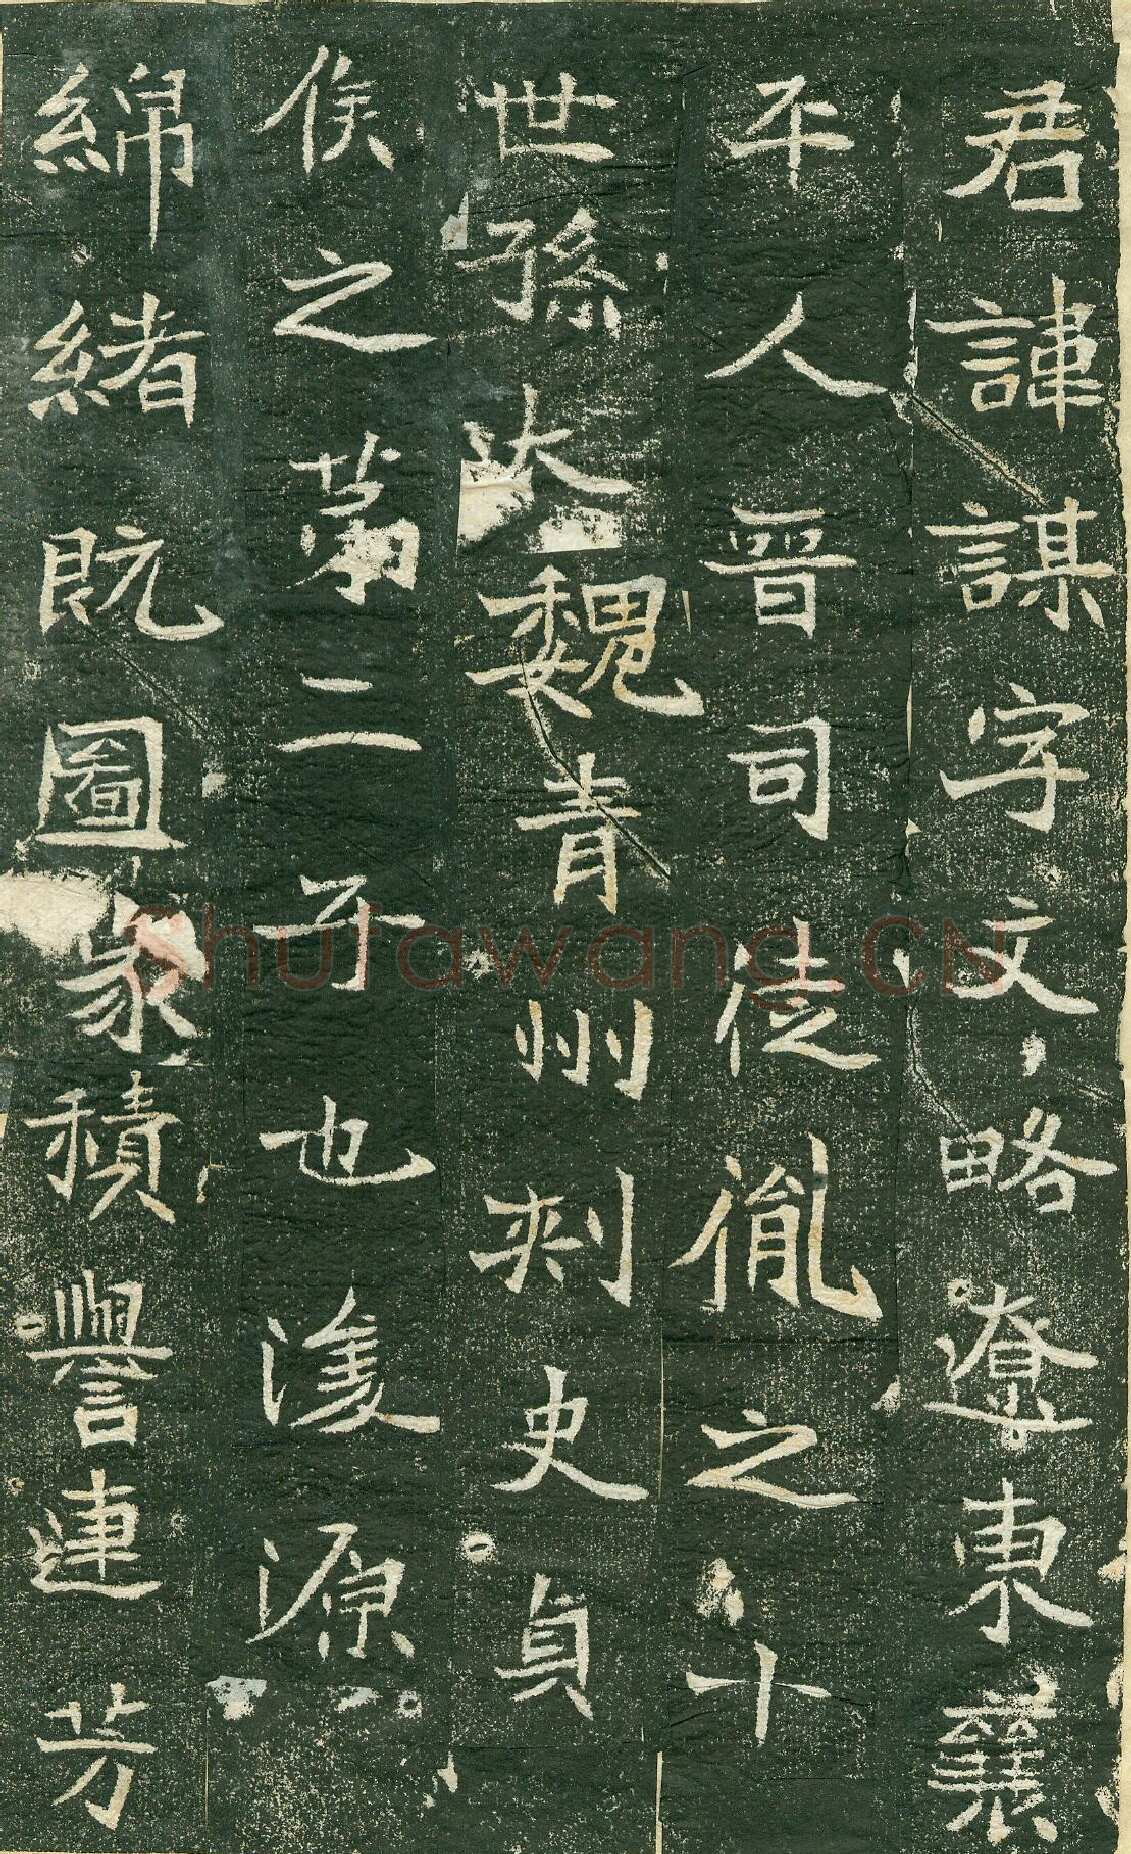 君諱諆字文略遼東襄
平人晉司徒胤之十
世孫大魏青州刺史貞
侯之苐二子也濬源
綿緒既圖家積譽連芳
Shufawang.CN